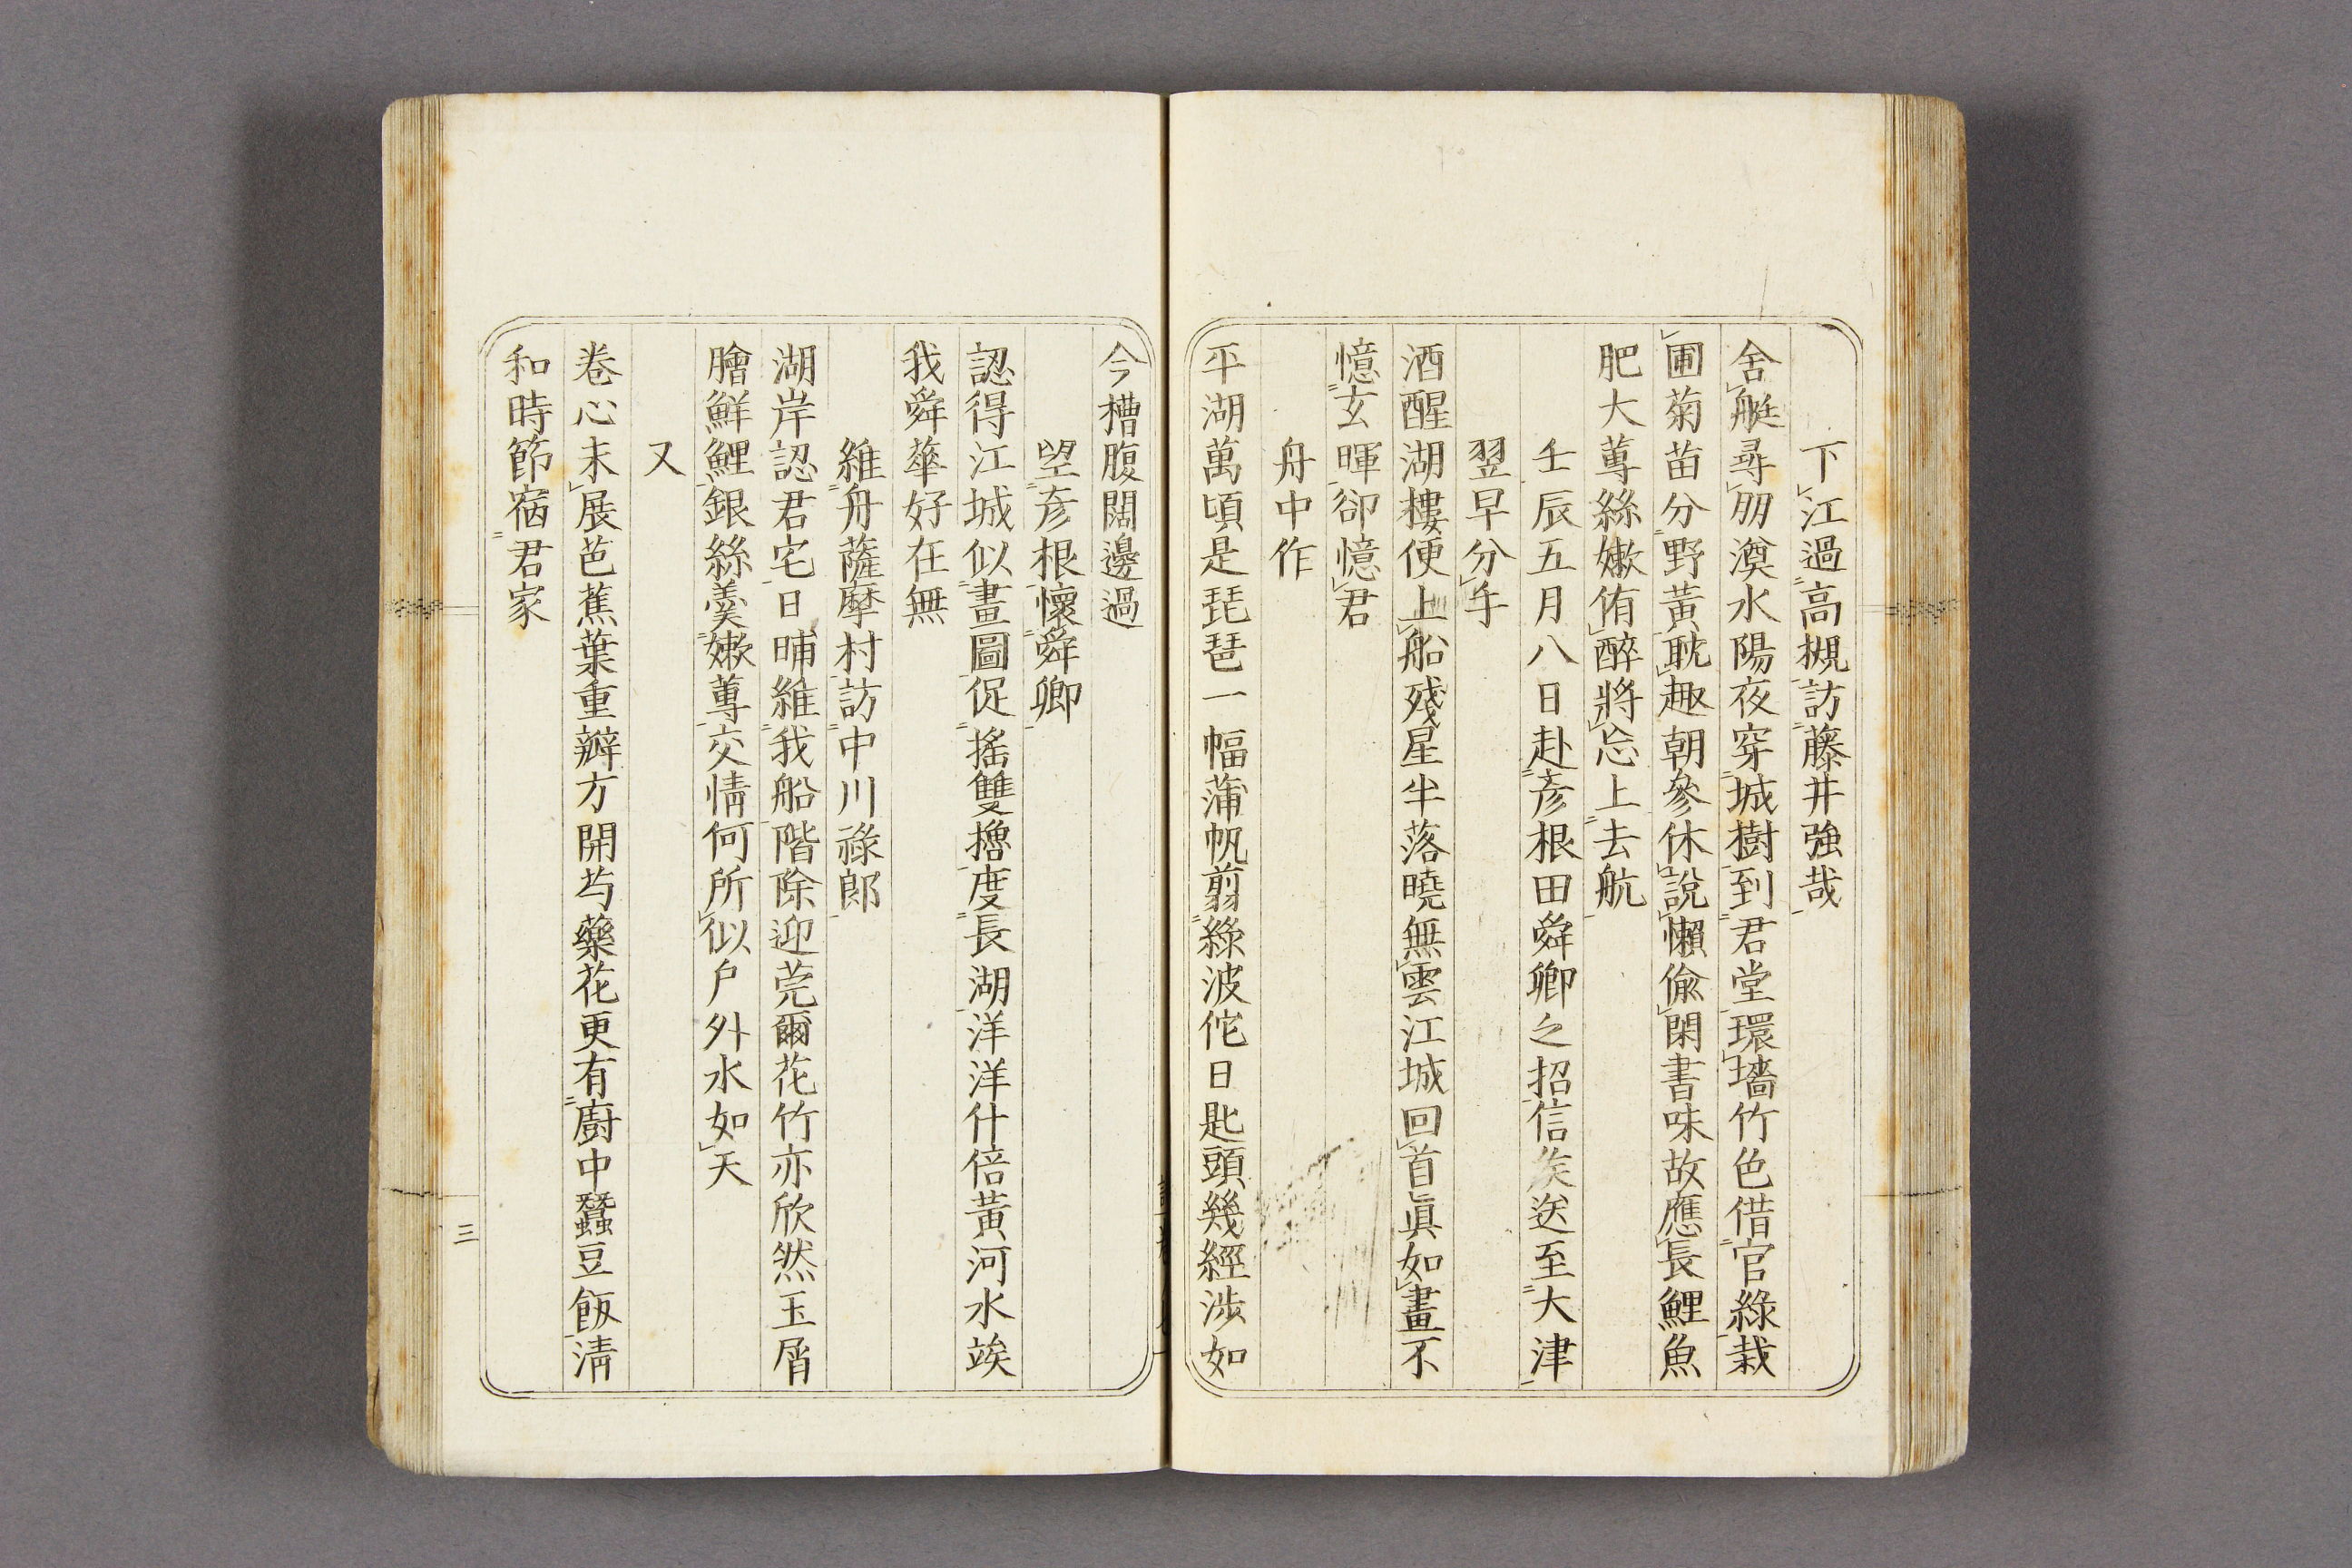 下江過高槻訪藤井強哉
舍艇尋朋澳水陽夜穿城樹到君堂環墻竹色借官綠栽
圃菊苗分野黃耽趣朝參休說懶偸閑書味故應長鯉魚
肥大蓴絲嫩侑醉將忘上去航
壬辰五月八日赴彥根田舜卿之招信矣送至大津
翌早分手
酒醒湖樓便上船殘星半落曉無雲江城回首眞如畫不
憶玄暉卻憶君
舟中作
平湖萬頃是琵琶一幅蒲帆剪綠波佗日匙頭幾經涉如
今槽腹闊邊過
望彥根懷舜卿
認得江城似畫圖促搖雙櫓度長湖洋洋什倍黃河水竢
我舜華好在無
維舟薩摩村訪中川祿郎
湖岸認君宅日晡維我船階除迎莞爾花竹亦欣然玉屑
膾鮮鯉銀絲羹嫩蓴交情何所似戶外水如天
又
卷心未展芭蕉葉重瓣方開芍藥花更有廚中蠶豆飯淸
和時節宿君家
三